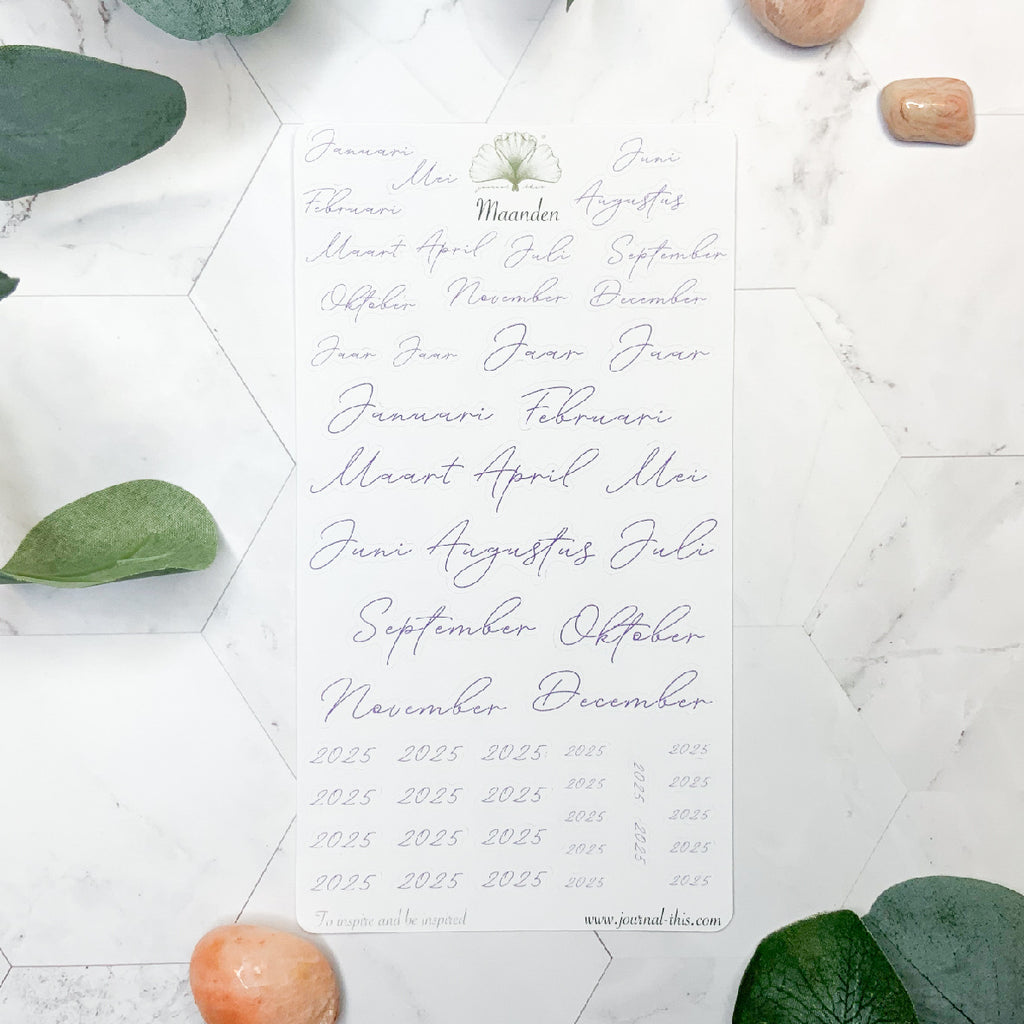 Januari Juni
Mei
journal this
Februari Maanden Augustus
Maart April Juli September
Oktober November December
Jaar Jaar Jaar Jaar
Januari Februari
Maart April Mei
Juni Augustus Juli
September Oktober
November December
2025 2025 2025 2025 2025
2025 2025 2025 2025 2025 2025
2025 2025 2025 2025 2025
2025 2025 2025 2025 2025
2025 2025 2025 2025 2025
To inspire and be inspired www.journal-this.com